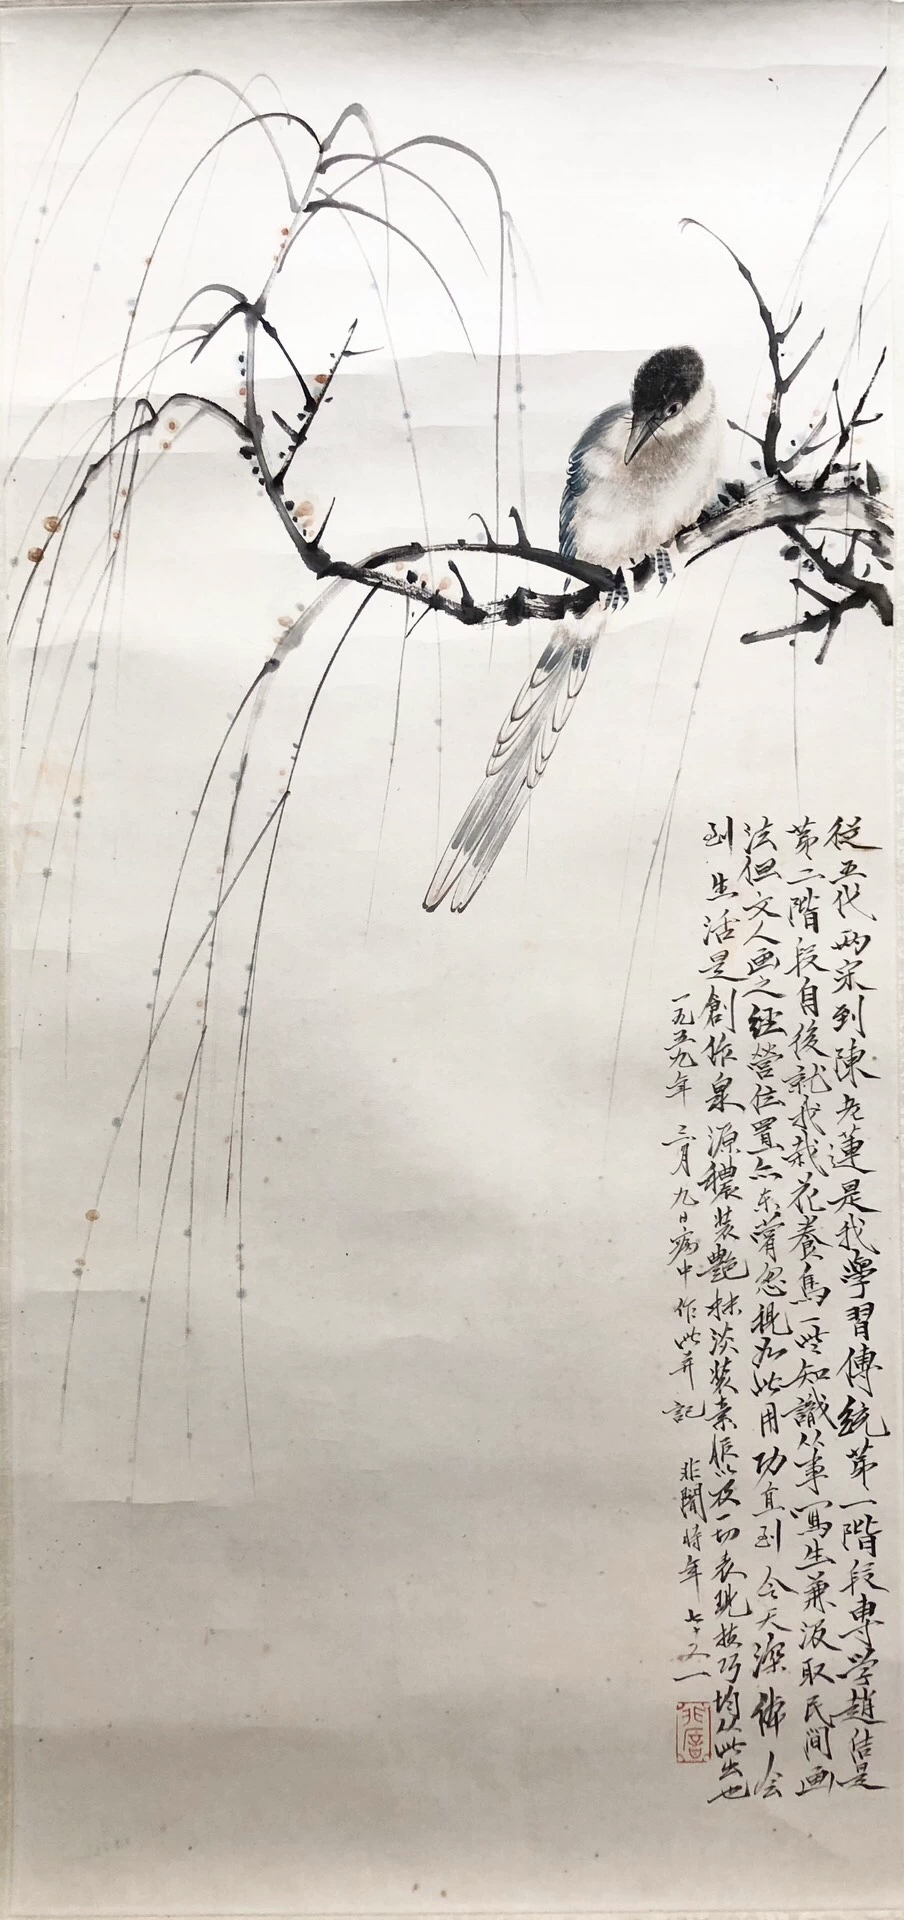 從五代兩宋到陳老蓮是我學習傳統第一階段專学趙佶是
第二階段自後就我栽花養鳥一些知識从事寫生兼汲取民间画
法但文人画之經營位置亦未嘗忽視如此用功直到今天深体会
到生活是創作泉源穠裝艷抹淡裝素服以及一切表現技巧均从此出也
一九五九年三月九日病中作此并記 非闇時年七十又一
非闇